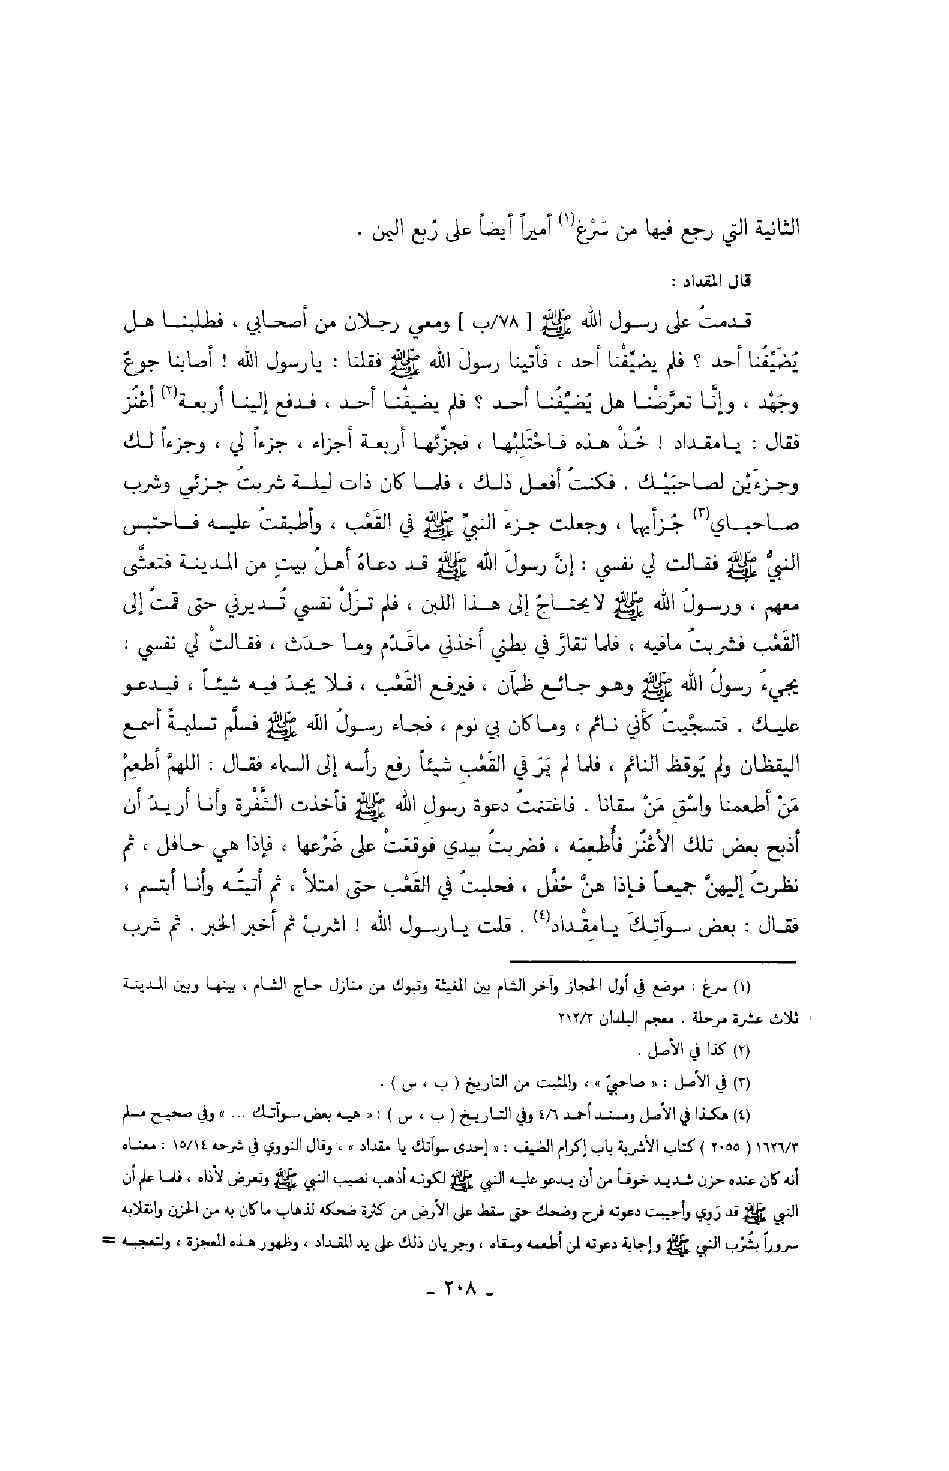 الثانية التي رجع فيها من سَرْغ(١) أميراً أيضاً على رُبع اليمن .
قال المقداد :
قدمتُ على رسول الله ﷺ [ ٧٨/ب ] ومعي رجلان من أصحابي ، فطلبنا هل
يُضَيِّفُنا أحد ؟ فلم يضيِّفْنا أحد ، فأتينا رسولَ الله ﷺ فقلنا : يارسول الله ! أصابنا جوعٌ
وجَهْد ، وإنَّا تعرَّضنا هل يُضيِّفُنا أحد ؟ فلم يضيفْنا أحد ، فدفع إلينا أربعة(٢) أعْنُز
فقال : يامقداد ! خُذْ هذه فاحْتَلِبْها ، فجزِّئها أربعة أجزاء ، جزءاً لي ، وجزءاً لك
وجزءَيْن لصاحبَيْك . فكنتُ أفعل ذلك ، فلما كان ذات ليلة شربتُ جزئي وشرب
صاحباي(٣) جُزأيها ، وجعلت جزءَ النبيِّ ﷺ في القَعْب ، وأطبقتُ عليه فاحتبس
النبيُّ ﷺ فقالت لي نفسي : إنَّ رسولَ الله ﷺ قد دعاهُ أهلُ بيتٍ من المدينة فتعشَّى
معهم ، ورسولُ الله ﷺ لا يحتاجُ إلى هذا اللبن ، فلم تزَلْ نفسي تُديرني حتى قمتُ إلى
القَعْب فشربتُ مافيه ، فلما تقارَّ في بطني أخذني ماقَدُم وما حدَث ، فقالتْ لي نفسي :
يجيءُ رسولُ الله ﷺ وهو جائع ظمآن ، فيرفع القَعْب ، فلا يجدُ فيه شيئاً ، فيدعو
عليك . فتسجَّيتُ كأني نائم ، وماكان بي نوم ، فجاء رسولُ الله ﷺ فسلَّم تسليمةً أسمع
اليقظان ولم يُوقظ النائم ، فلما لم يَرَ في القَعْب شيئاً رفع رأسه إلى السماء فقال : اللهمَّ أطعِمْ
مَنْ أطعمنا واسْقِ مَنْ سقانا . فاغتنمتُ دعوة رسولِ الله ﷺ فأخذت الشَّفْرة وأنا أريدُ أن
أذبح بعض تلك الأعْنُز فأُطعِمَه ، فضربتُ بيدي فوقعتْ على ضَرْعها ، فإذا هي حافل ، ثم
نظرتُ إليهنَّ جميعاً فإذا هنَّ حُفَّل ، فحلبتُ في القَعْب حتى امتلأ ، ثم أتيتُه وأنا أبتسم ،
فقال : بعض سوآتِكَ يامِقْداد(٤) . قلت يارسول الله ! اشربْ ثم أُخبر الخبر . ثم شرب
(١) سرغ : موضع في أول الحجاز وآخر الشام بين المغيثة وتبوك من منازل حاج الشام ، بينها وبين المدينة
ثلاث عشرة مرحلة . معجم البلدان ٢١٢/٣
(٢) كذا في الأصل .
(٣) في الأصل : « صاحبيّ » ، والمثبت من التاريخ ( ب ، س ) .
(٤) هكذا في الأصل ومسند أحمد ٤/٦ وفي التاريخ ( ب ، س ) : « هيه بعض سوآتك ... » وفي صحيح مسلم
١٦٢٦/٣ ( ٢٠٥٥ ) كتاب الأشربة باب إكرام الضيف : « إحدى سوآتك يا مقداد » ، وقال النووي في شرحه ١٥/١٤ : معناه
أنه كان عنده حزن شديد خوفاً من أن يدعو عليه النبي ﷺ لكونه أذهب نصيب النبي ﷺ وتعرض لأذاه ، فلما علم أن
النبي ﷺ قد رَوِي وأجيبت دعوته فرح وضحك حتى سقط على الأرض من كثرة ضحكه لذهاب ماكان به من الحزن وانقلابه
سروراً بشُرْب النبي ﷺ وإجابة دعوته لمن أطعمه وسقاه ، وجريان ذلك على يد المقداد ، وظهور هذه المعجزة ، ولتعجبه =
- ٢٠٨ -